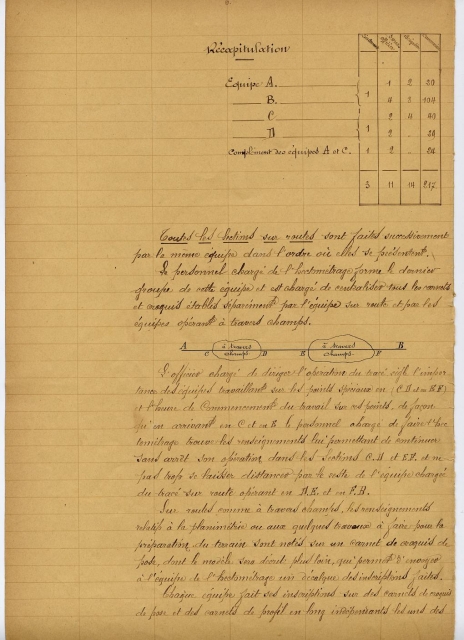 Récapitulation
Equipe A. 1 2 20
B. 1 4 3 104
C 2 4 40
D 1 2 - 28
Complément des équipes A et C. 1 2 -
3 11 14 217
Toutes les sections sur routes sont faites successivement
par la même équipe dans l'ordre où elles se présentent.
Le personnel chargé de l'hectométrage forme le dernier
groupe de cette équipe et est chargé de centraliser tous les carnets
et croquis établis séparément par l'équipe sur route et par les
équipes opérant à travers champs.
A C à travers champs D E à travers champs F B
L'officier chargé de diriger l'opération du tracé règle l'impor
tance des équipes travaillant sur les points spéciaux en (C D et en E F)
et l'heure de commencement du travail sur ces points, de façon
qu'en arrivant en C et en E le personnel chargé de faire l'hec
tométrage trouve les renseignements lui permettant de continuer
sans arrêt son opération dans les sections C.D et E.F. et ne
pas trop se laisser distancer par le reste de l'équipe chargée
du tracé sur route opérant en D.E. et en F.B.
Sur routes comme à travers champs, les renseignements
relatifs à la planimétrie ou aux quelques travaux à faire pour la
préparation du terrain sont notés sur un carnet de croquis de
pose, dont le modèle sera donné plus loin, qui permet d'envoyer
à l'équipe de l'hectométrage un décalque des inscriptions faites.
Chaque équipe fait ses inscriptions sur des carnets de croquis
de pose et des carnets de profil en long indépendants les uns des